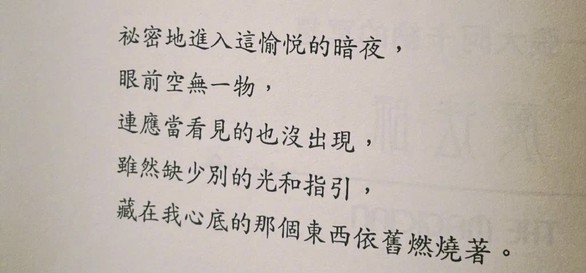 祕密地進入這愉悅的暗夜，
眼前空無一物，
連應當看見的也沒出現，
雖然缺少別的光和指引，
藏在我心底的那個東西依舊燃燒著。